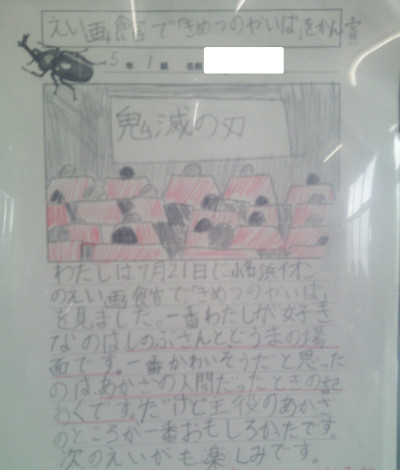 えい画館で「きめつのやいば」をかん賞
5年1組 名前
鬼滅の刃
わたしは7月21日に小名浜イオン
のえい画館で「きめつのやいば」
を見ました。一番わたしが好き
なのはしのぶさんとどうまの場
面です。一番かわいそうだと思った
のは、あかざの人間だったときの記
おくです。だけど主役のあかざ
のところが一番おもしろかたです。
次のえいがも楽しみです。